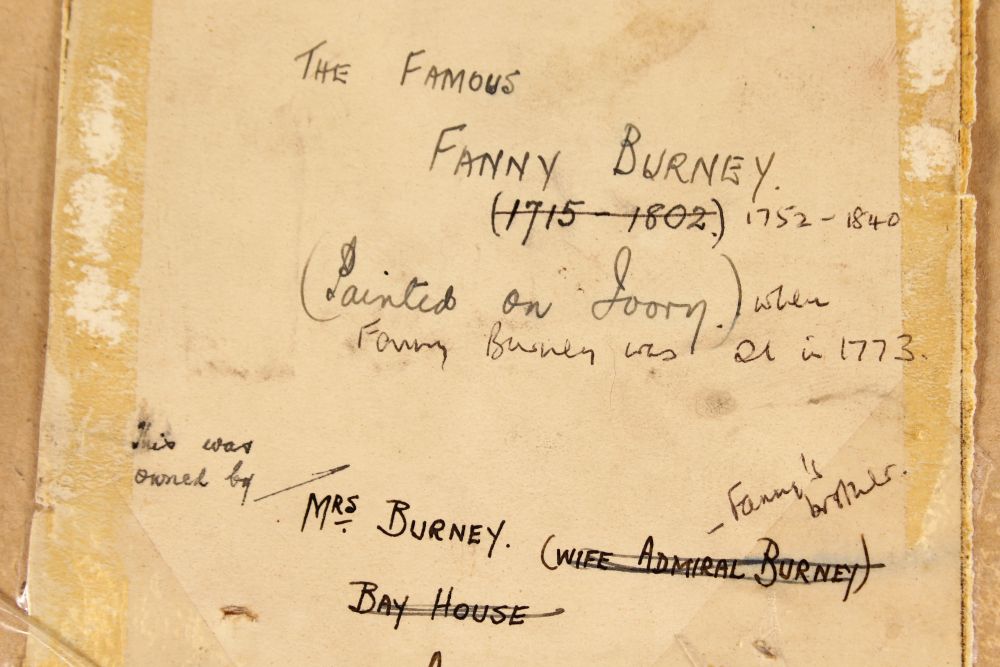 THE FAMOUS
FANNY BURNEY.
(1715 - 1802.) 1752 - 1840
(Painted on Ivory.) when
Fanny Burney was 21 in 1773.
This was
owned by
MRS BURNEY.
- Fanny's
brother.
(WIFE ADMIRAL BURNEY)
BAY HOUSE